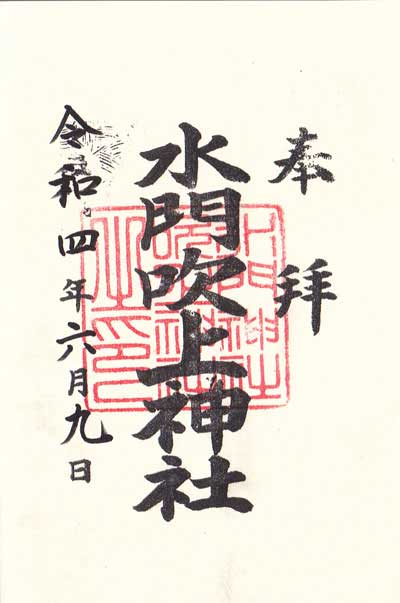 奉拝
水門吹上神社
令和四年六月九日